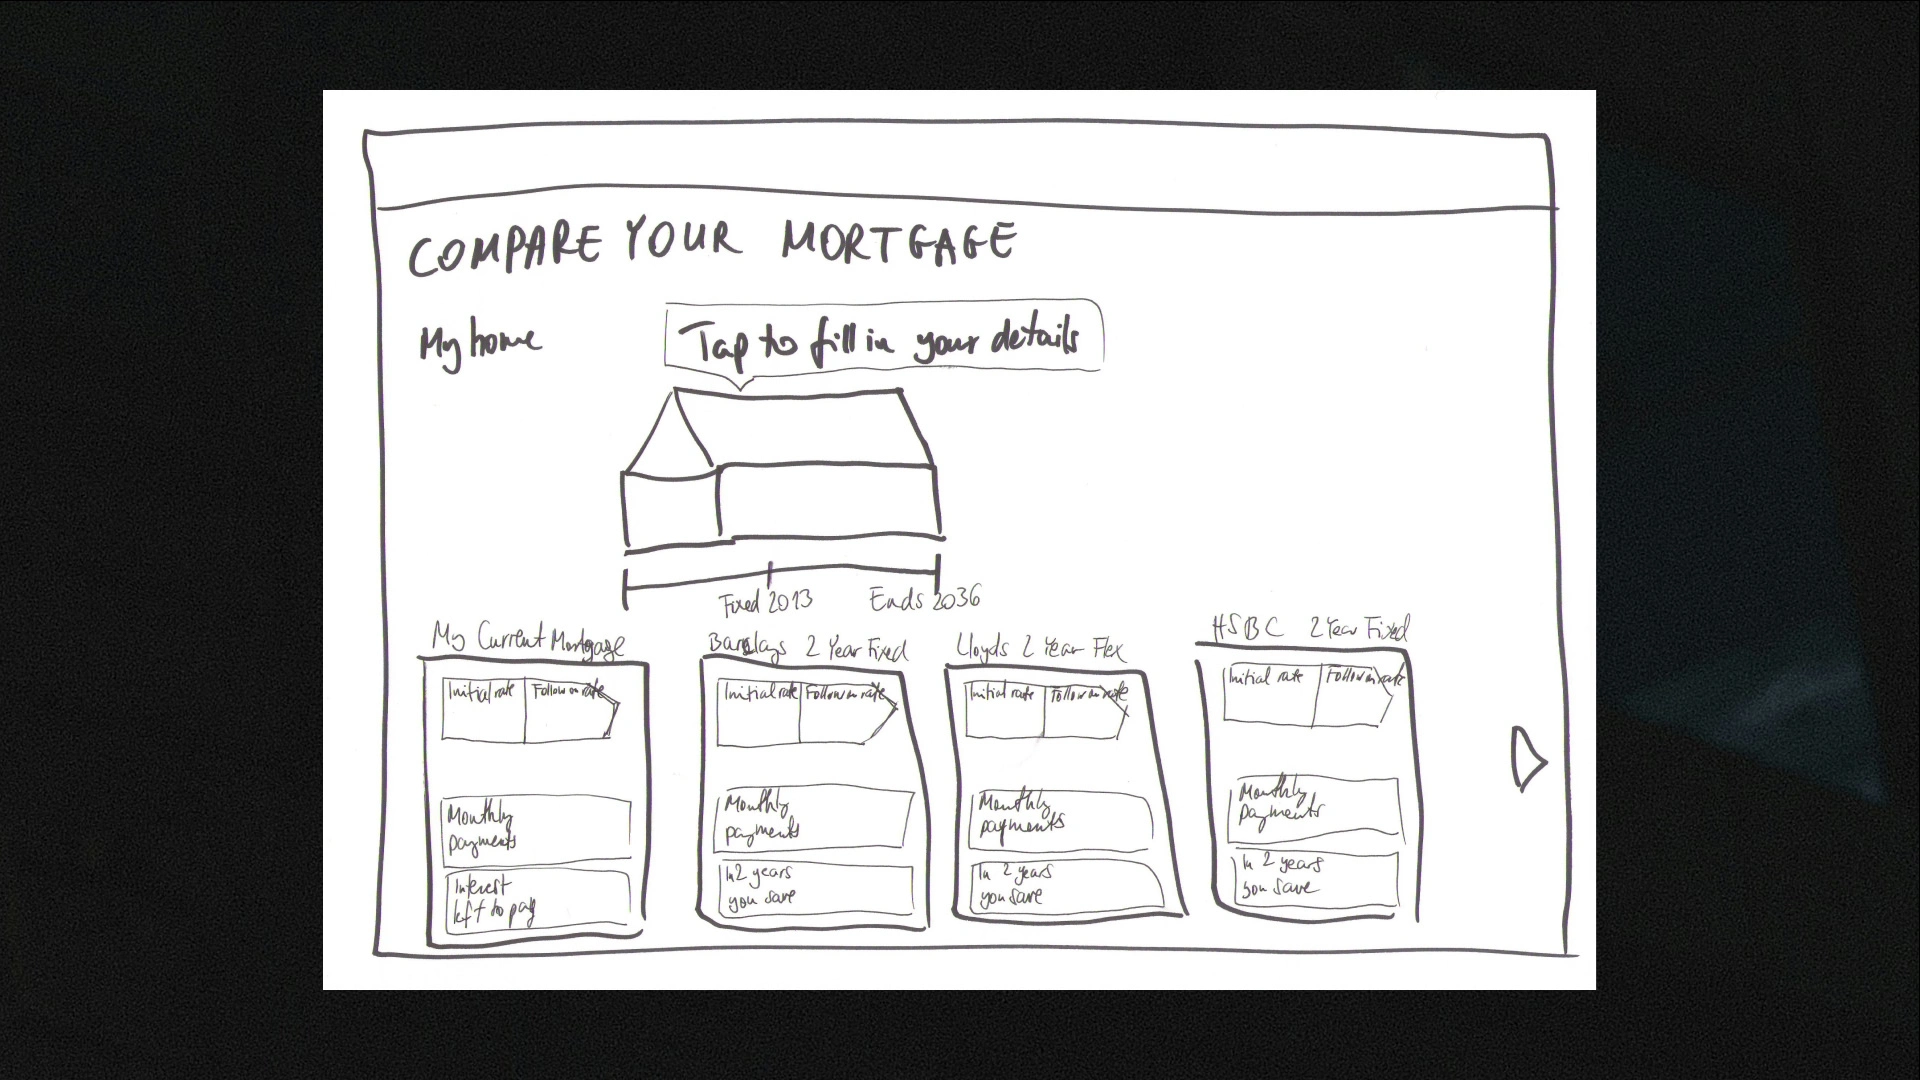 COMPARE YOUR MORTGAGE
My home
Tap to fill in your details
Fixed 2013
Ends 2036
My Current Mortgage
Initial rate
Follow on rate
Monthly
payments
Interest
left to pay
Barclays 2 Year Fixed
Initial rate
Follow on rate
Monthly
payments
In 2 years
you save
Lloyds 2 Year Flex
Initial rate
Follow on rate
Monthly
payments
In 2 years
you save
HSBC 2 Year Fixed
Initial rate
Follow on rate
Monthly
payments
In 2 years
you save